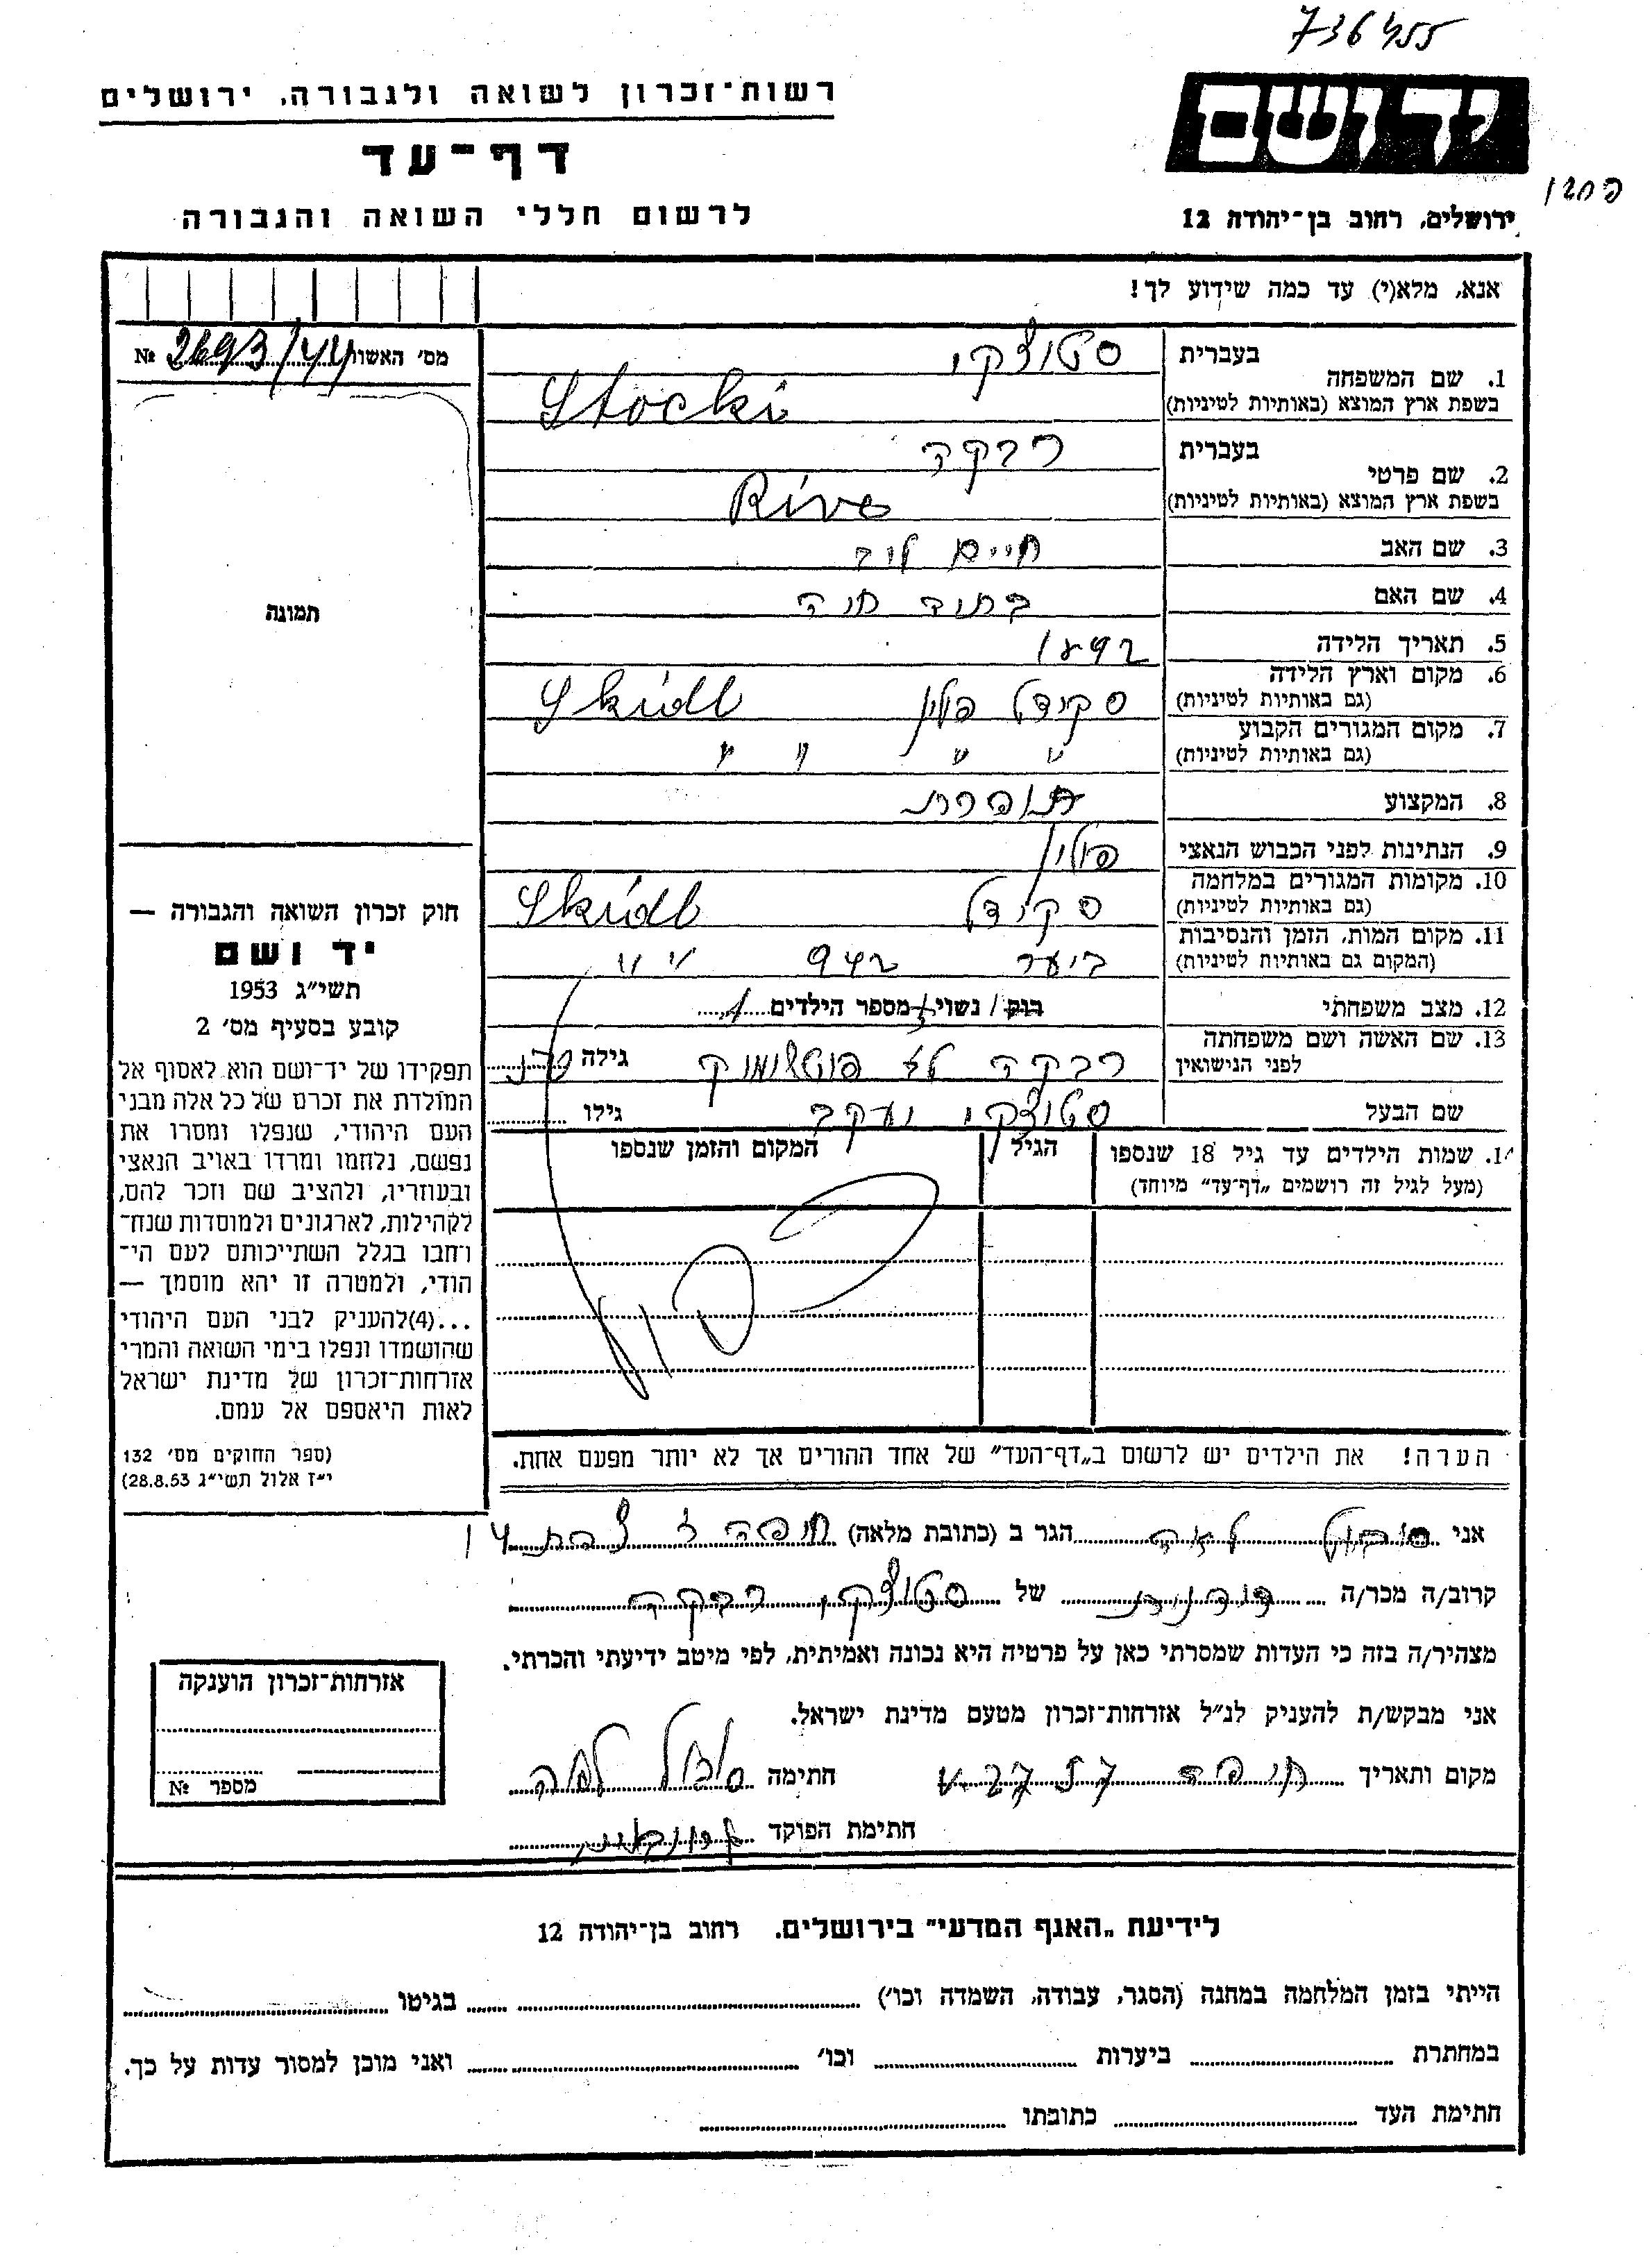 736455
רשות־זכרון לשואה ולגבורה, ירושלים
יד ושם
דף־עד
לרשום חללי השואה והגבורה
ירושלים, רחוב בן־יהודה 12
אנא, מלא(י) עד כמה שידוע לך!
מס׳ האשור № 2693/44
בעברית סטוצקי
1. שם המשפחה
בשפת ארץ המוצא (באותיות לטיניות) Stocki
בעברית רבקה
2. שם פרטי
בשפת ארץ המוצא (באותיות לטיניות) Rive
3. שם האב חיים
4. שם האם חוה
5. תאריך הלידה
6. מקום וארץ הלידה
(גם באותיות לטיניות) סקידל פולין Skidl
7. מקום המגורים הקבוע
(גם באותיות לטיניות) " " " "
8. המקצוע תופרת
9. הנתינות לפני הכבוש הנאצי פולין
10. מקומות המגורים במלחמה
(גם באותיות לטיניות) סקידל Skidl
11. מקום המות, הזמן והנסיבות
(המקום גם באותיות לטיניות) ביער 942 " "
12. מצב משפחתי רווק / נשוי / מספר הילדים
13. שם האשה ושם משפחתה
לפני הנישואין רבקה גילה
שם הבעל סטוצקי יעקב גילו
14. שמות הילדים עד גיל 18 שנספו הגיל המקום והזמן שנספו
(מעל לגיל זה רושמים „דף־עד” מיוחד)
הערה! את הילדים יש לרשום ב„דף־העד” של אחד ההורים אך לא יותר מפעם אחת.
תמונה
חוק זכרון השואה והגבורה —
יד ושם
תשי״ג 1953
קובע בסעיף מס׳ 2
תפקידו של יד־ושם הוא לאסוף אל
המולדת את זכרם של כל אלה מבני
העם היהודי, שנפלו ומסרו את
נפשם, נלחמו ומרדו באויב הנאצי
ובעוזריו, ולהציב שם וזכר להם,
לקהילות, לארגונים ולמוסדות שנח־
רחבו בגלל השתייכותם לעם הי־
הודי, ולמטרה זו יהא מוסמך —
...(4)להעניק לבני העם היהודי
שהושמדו ונפלו בימי השואה והמרי
אזרחות־זכרון של מדינת ישראל
לאות היאספם אל עמם.
(ספר החוקים מס׳ 132
י״ז אלול תשי״ג 28.8.53)
אני סובול לאה הגר ב (כתובת מלאה) חיפה
קרוב/ה מכר/ה של סטוצקי רבקה
מצהיר/ה בזה כי העדות שמסרתי כאן על פרטיה היא נכונה ואמיתית, לפי מיטב ידיעתי והכרתי.
אני מבקש/ת להעניק לנ״ל אזרחות־זכרון מטעם מדינת ישראל.
מקום ותאריך חיפה חתימה סובול לאה
חתימת הפוקד
אזרחות־זכרון הוענקה
מספר №
לידיעת „האגף המדעי” בירושלים, רחוב בן־יהודה 12
הייתי בזמן המלחמה במחנה (הסגר, עבודה, השמדה וכו׳) בגיטו
במחתרת ביערות וכו׳ ואני מוכן למסור עדות על כך.
חתימת העד כתובתו